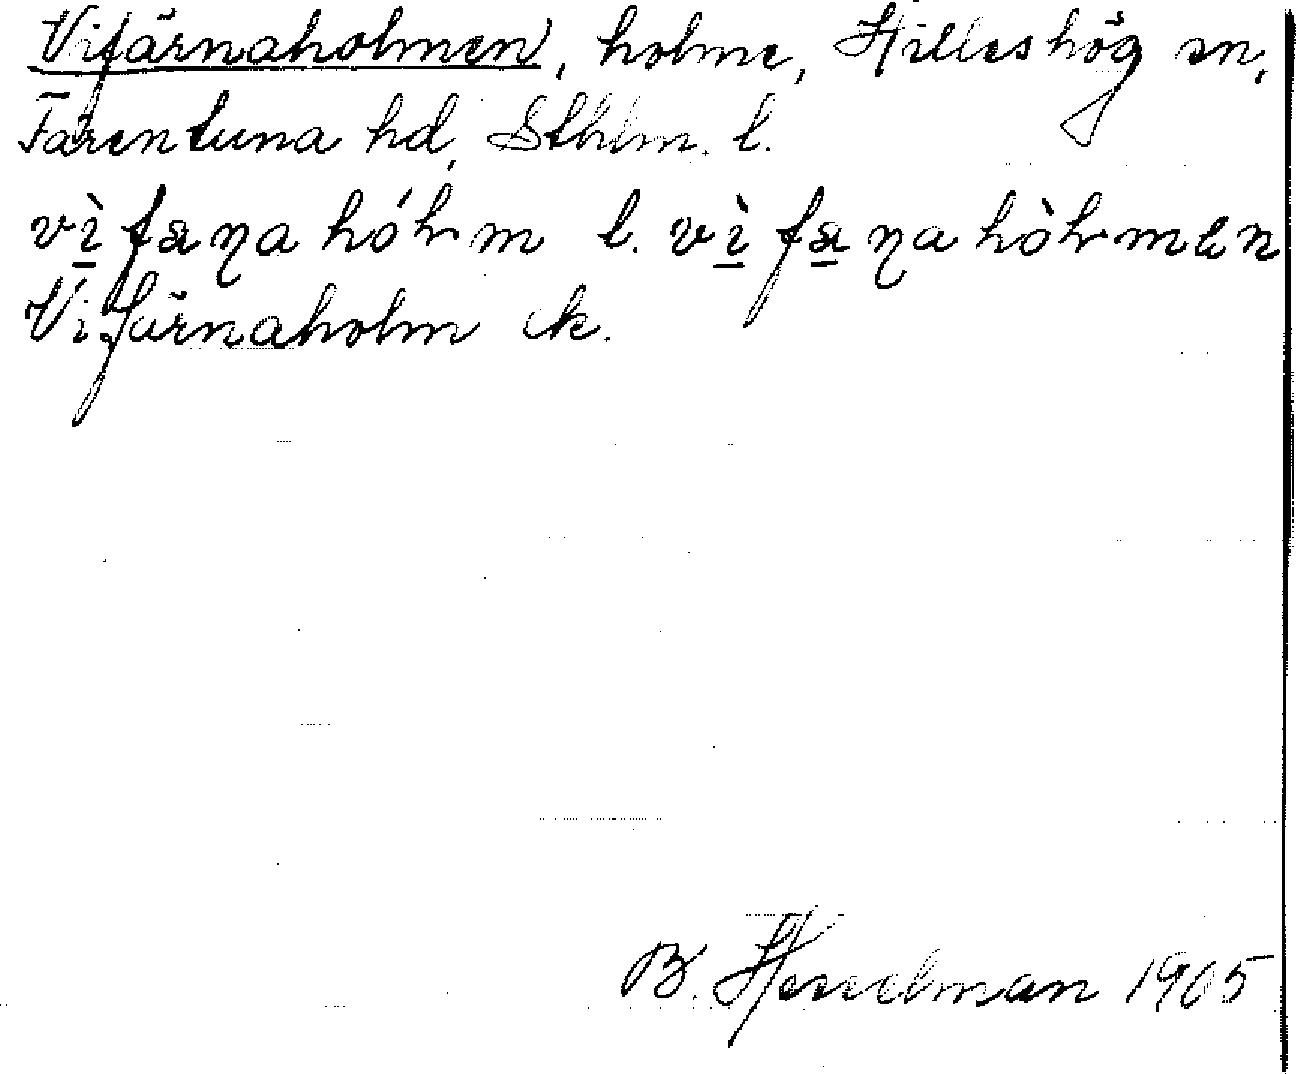 Vifärnaholmen, holme, Hilleshög sn,
Färentuna hd, Sthlm. l.
vì̱fa̱ŋahóhm l. vì̱fa̱ŋahòhmen
Vifärnaholm ek.
B. Hesselman 1905